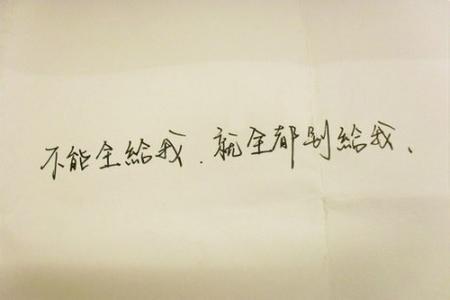 不能全給我、就全都别給我、